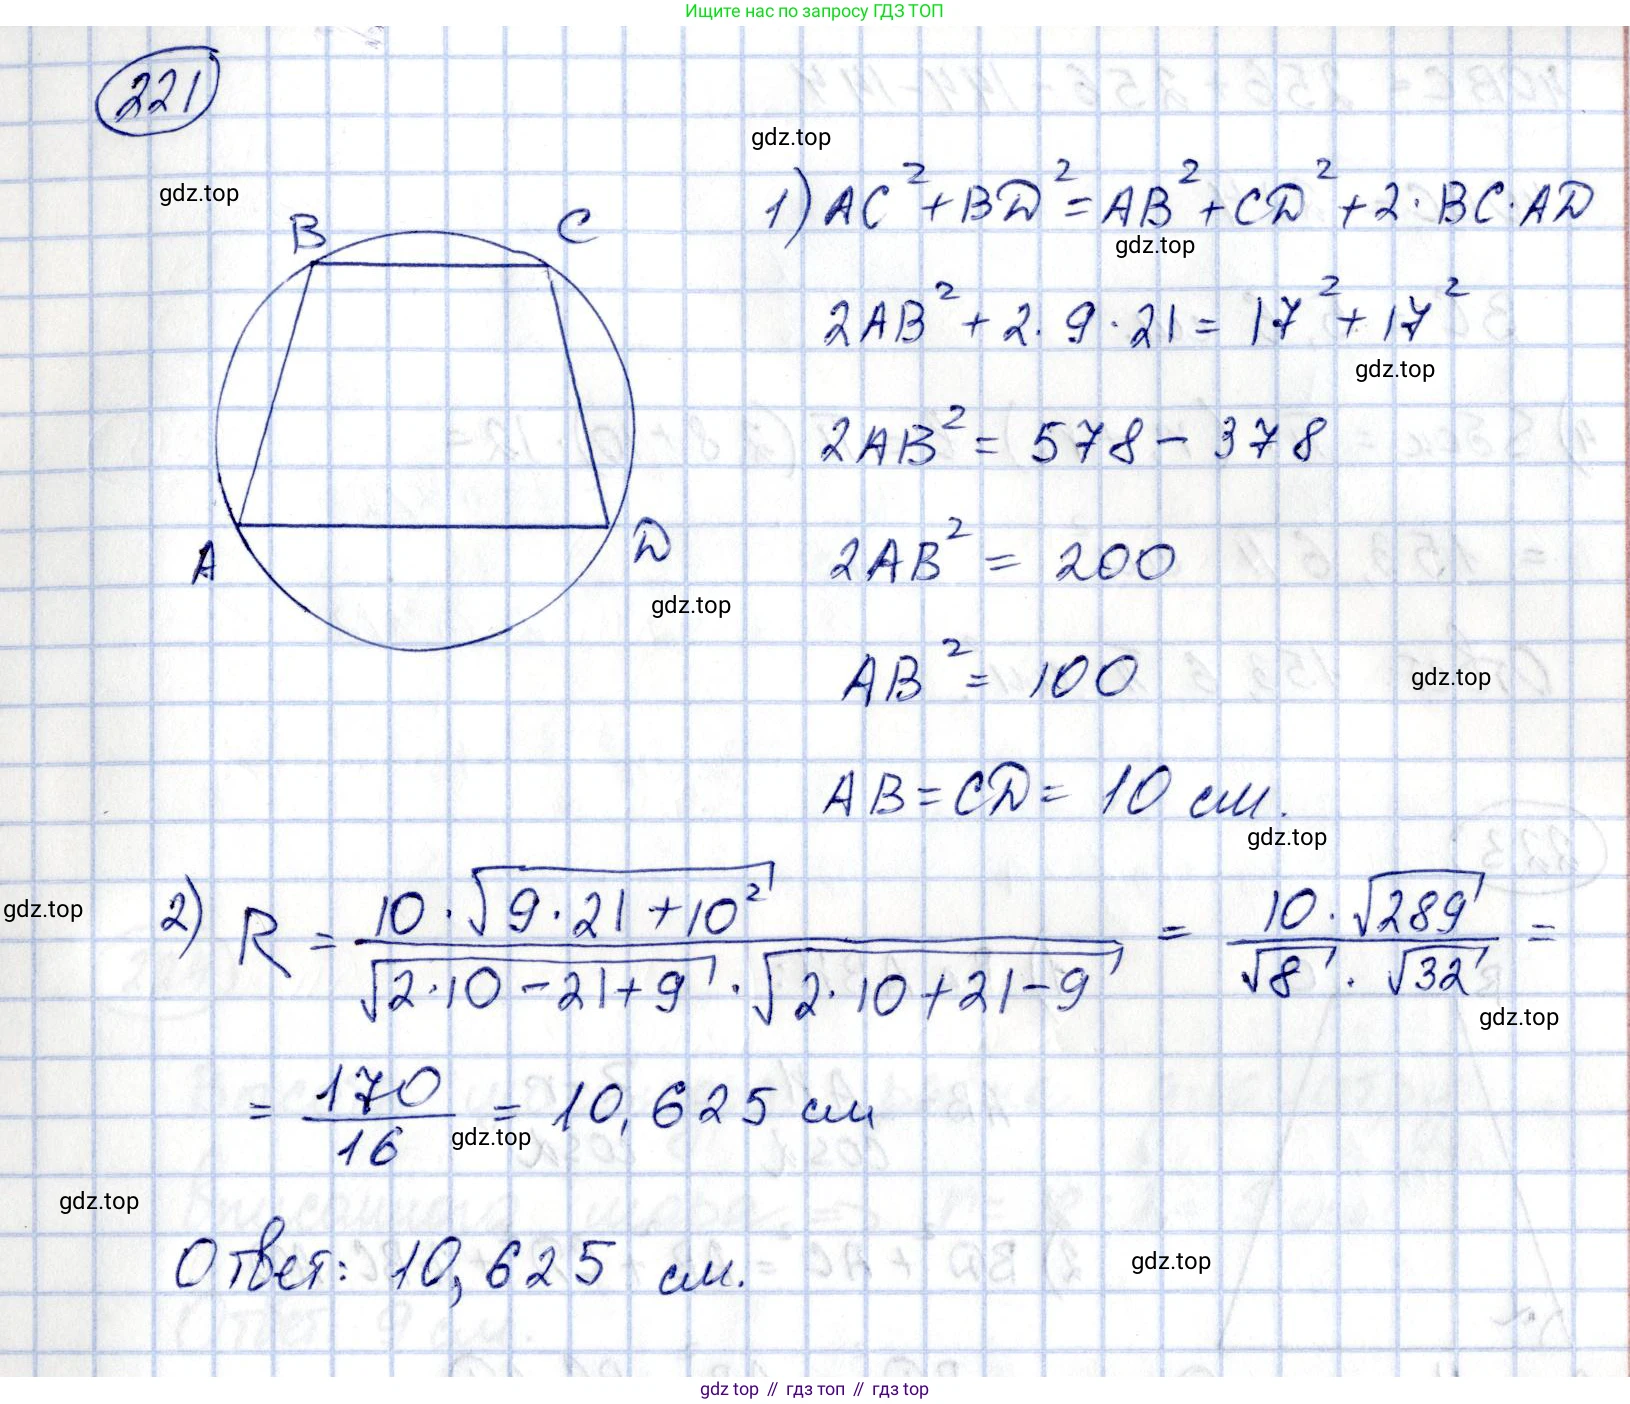 Ищите нас по запросу ГДЗ ТОП
221
gdz.top
gdz.top
B
C
A
D
gdz.top
1) AC² + BD² = AB² + CD² + 2 · BC · AD
gdz.top
2AB² + 2 · 9 · 21 = 17² + 17²
gdz.top
2AB² = 578 − 378
2AB² = 200
AB² = 100
gdz.top
AB = CD = 10 см.
gdz.top
gdz.top
2) R = (10 · √(9 · 21 + 10²)) / (√(2 · 10 − 21 + 9) · √(2 · 10 + 21 − 9)) = (10 · √289) / (√8 · √32) =
gdz.top
= 170 / 16 = 10,625 см
gdz.top
gdz.top
Ответ: 10,625 см.
gdz.top
gdz top // гдз топ // гдз top